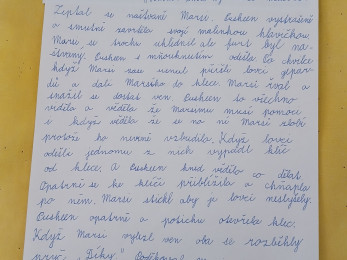 Zeptal se naštvaně Marsi. Cusheen vystrašeně
a smutně zavrtěla svojí malinkou hlavičkou.
Marsi se trochu uklidnil ale furt byl na-
štvaný. Cusheen s mňouknutím odešla. Co chvíce
když Marsi zas usnul přišli lovci gepar-
dů a dali Marsiho do klece. Marsi řval a
snažil se dostat ven. Cusheen to všechno
viděla a věděla že Marsimu musí pomoct
i když věděla že se na ní Marsi zlobí
protože ho nevině vzbudila. Když lovci
odešli jednomu z nich vypadl klíč
od klece. A Cusheen hned věděla co dělat.
Opatrně se ke klíči přiblížila a chňapla
po něm. Marsi ztichl aby je lovci neslyšely.
Cusheen opatrně a potichu otevřela klec.
Když Marsi vylezl ven oba se rozběhly
pryč. „Díky."